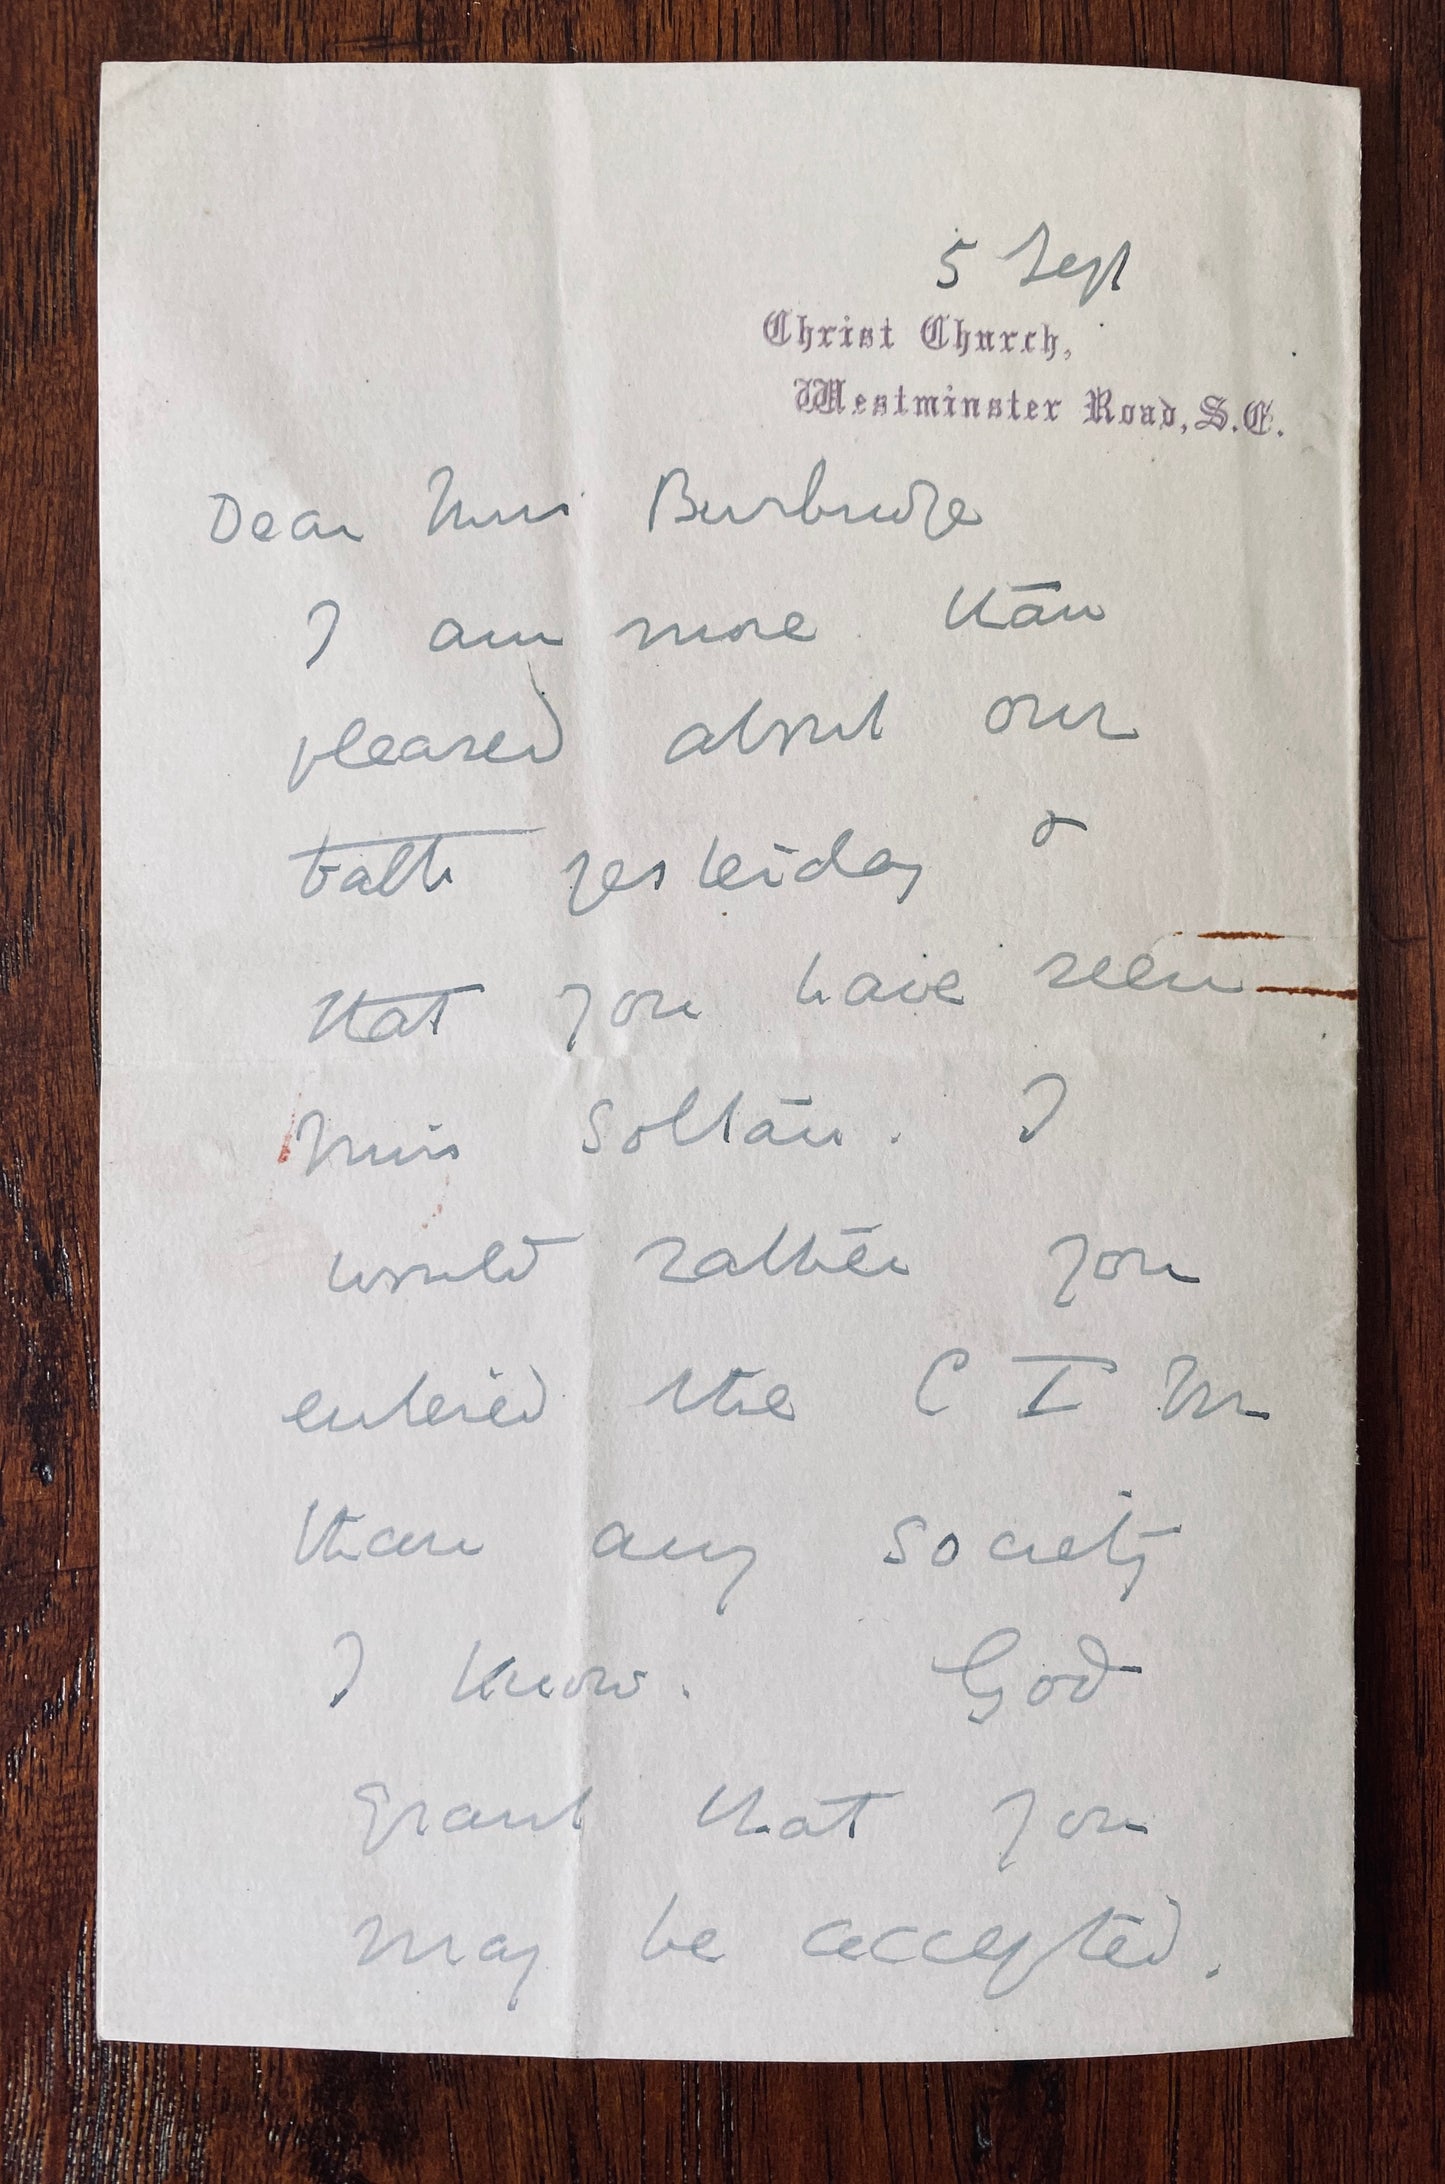 5 Sept
Christ Church,
Westminster Road, S.E.
Dear Miss Burbridge
I am more than
pleased about our
talk yesterday &
that you have seen
Miss Soltau. I
would rather you
entered the C I M
than any society
I know. God
grant that you
may be accepted.